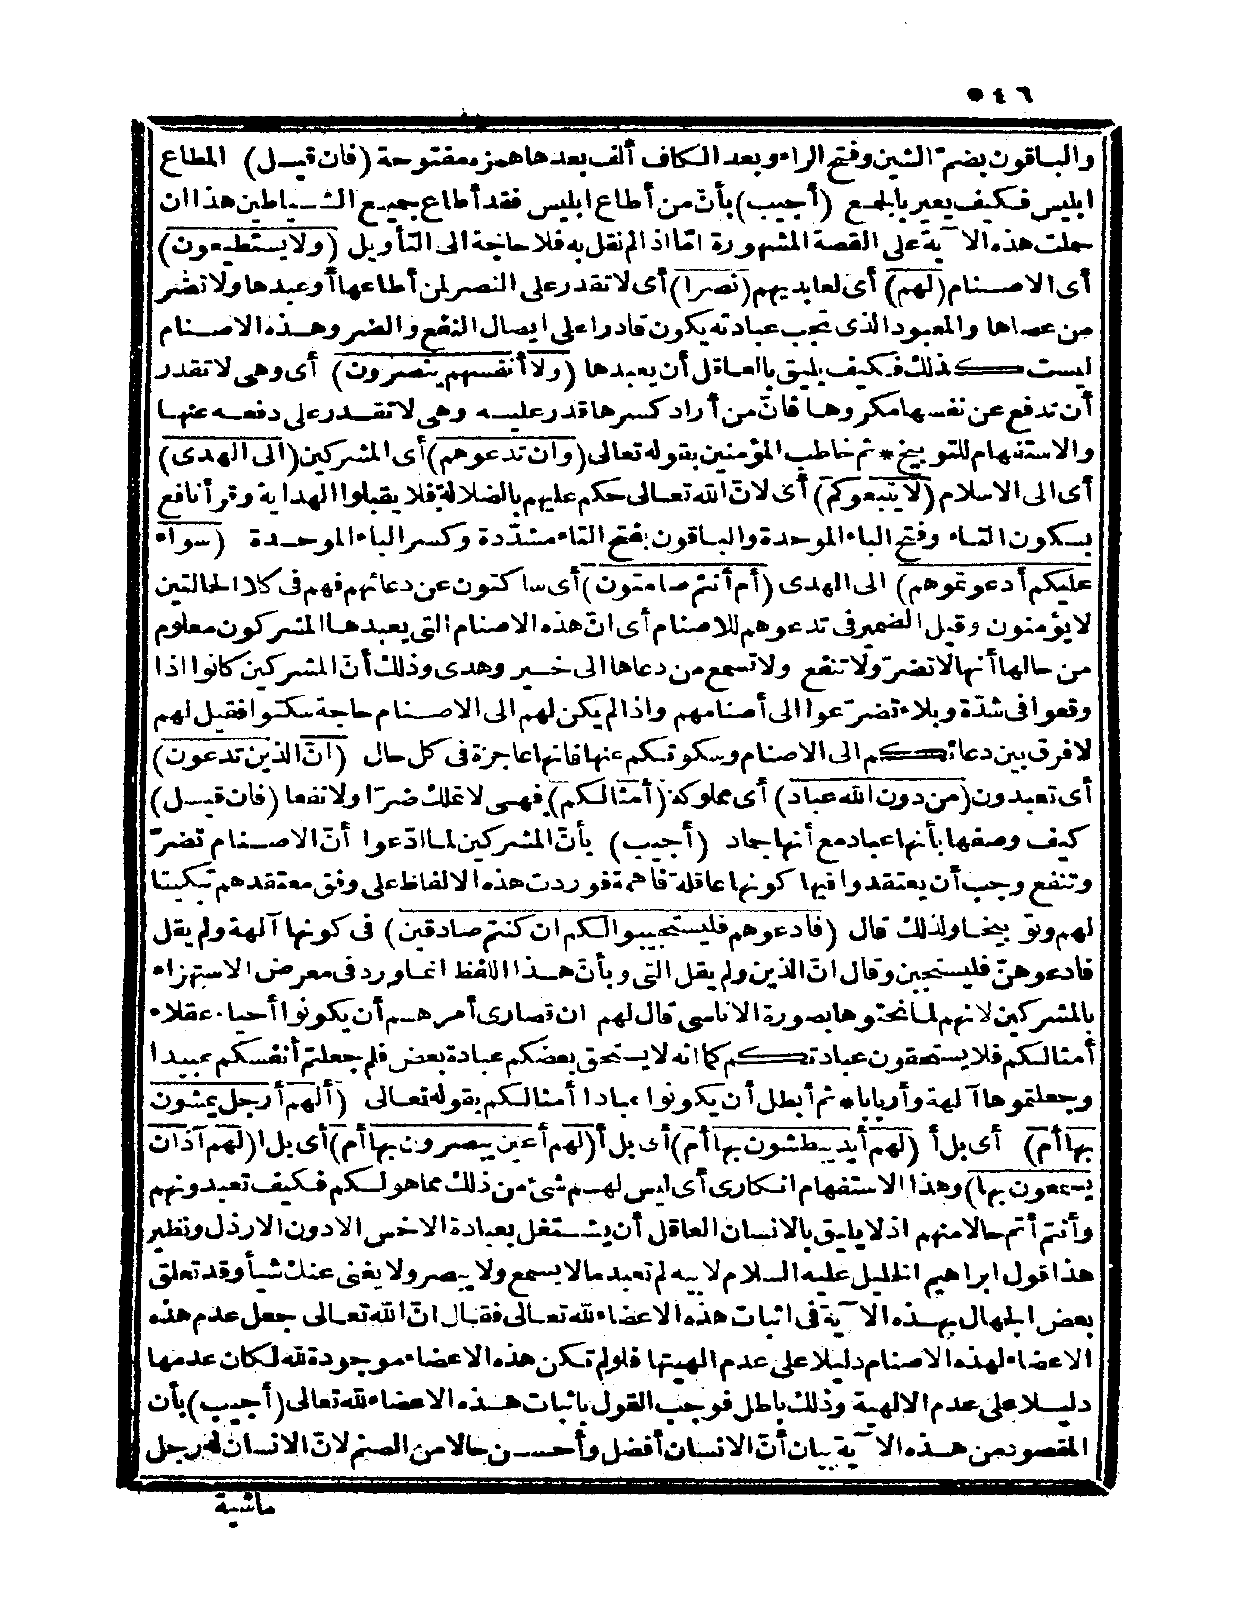 ٥٤٦
والباقون بضمّ الشين وفتح الراء وبعد الكاف ألف بعدها همزة مفتوحة (فان قيل) المطاع
ابليس فكيف يعبر بالجمع (أجيب) بأنّ من أطاع ابليس فقد أطاع جميع الشياطين هذا ان
حملت هذه الآية على القصة المشهورة امّا اذا لم نقل به فلا حاجة الى التأويل (ولا يستطيعون)
أى الاصنام (لهم) أى لعابديهم (نصرا) أى لا تقدر على النصر لمن أطاعها أو عبدها ولا تضر
من عصاها والمعبود الذى تجب عبادته يكون قادرا على ايصال النفع والضر وهذه الاصنام
ليست كذلك فكيف يليق بالعاقل أن يعبدها (ولا أنفسهم ينصرون) أى وهى لا تقدر
أن تدفع عن نفسها مكروها فانّ من أراد كسرها قدر عليه وهى لا تقدر على دفعه عنها
والاستفهام للتوبيخ * ثم خاطب المؤمنين بقوله تعالى (وان تدعوهم) أى المشركين (الى الهدى)
أى الى الاسلام (لا يتبعوكم) أى لانّ الله تعالى حكم عليهم بالضلالة فلا يقبلوا الهداية وقرأ نافع
بسكون التاء وفتح الباء الموحدة والباقون بفتح التاء مشدّدة وكسر الباء الموحدة (سواء
عليكم أدعوتموهم) الى الهدى (أم أنتم صامتون) أى ساكتون عن دعائهم فهم فى كلا الحالتين
لا يؤمنون وقيل الضمير فى تدعوهم للاصنام أى انّ هذه الاصنام التى يعبدها المشركون معلوم
من حالها أنها لا تضرّ ولا تنفع ولا تسمع من دعاها الى خير وهدى وذلك أنّ المشركين كانوا اذا
وقعوا فى شدّة وبلاء تضرّعوا الى أصنامهم واذا لم يكن لهم الى الاصنام حاجة سكتوا فقيل لهم
لا فرق بين دعائكم الى الاصنام وسكوتكم عنها فانها عاجزة فى كل حال (انّ الذين تدعون)
أى تعبدون (من دون الله عباد) أى مملوكة (أمثالكم) فهى لا تملك ضرّا ولا نفعا (فان قيل)
كيف وصفها بأنها عباد مع أنها جماد (أجيب) بأنّ المشركين لما ادّعوا أنّ الاصنام تضرّ
وتنفع وجب أن يعتقدوا فيها كونها عاقلة فاهمة فوردت هذه الالفاظ على وفق معتقدهم تبكيتا
لهم وتوبيخا ولذلك قال (فادعوهم فليستجيبوا لكم ان كنتم صادقين) فى كونها آلهة ولم يقل
فادعوهنّ فليستجبن وقال انّ الذين ولم يقل التى وبأنّ هذا اللفظ انما ورد فى معرض الاستهزاء
بالمشركين لانهم لما نحتوها بصورة الاناسى قال لهم ان قصارى أمرهم أن يكونوا أحياء عقلاء
أمثالكم فلا يستحقون عبادتكم كما انه لا يستحق بعضكم عبادة بعض فلم جعلتم أنفسكم عبيدا
وجعلتموها آلهة وأربابا * ثم أبطل أن يكونوا عبادا أمثالكم بقوله تعالى (ألهم أرجل يمشون
بها أم) أى بل أ (لهم أيد يبطشون بها أم) أى بل أ (لهم أعين يبصرون بها أم) أى بل ا (لهم آذان
يسمعون بها) وهذا الاستفهام انكارى أى ليس لهم شئ من ذلك مما هو لكم فكيف تعبدونهم
وأنتم أتم حالا منهم اذ لا يليق بالانسان العاقل أن يشتغل بعبادة الاخس الادون الارذل ونظير
هذا قول ابراهيم الخليل عليه السلام لابيه لم تعبد ما لا يسمع ولا يبصر ولا يغنى عنك شيأ وقد تعلق
بعض الجهال بهذه الآية فى اثبات هذه الاعضاء لله تعالى فقال انّ الله تعالى جعل عدم هذه
الاعضاء لهذه الاصنام دليلا على عدم الهيتها فلو لم تكن هذه الاعضاء موجودة لله لكان عدمها
دليلا على عدم الالهية وذلك باطل فوجب القول باثبات هذه الاعضاء لله تعالى (أجيب) بأن
المقصود من هذه الآية بيان أنّ الانسان أفضل وأحسن حالا من الصنم لانّ الانسان له رجل
ماشية